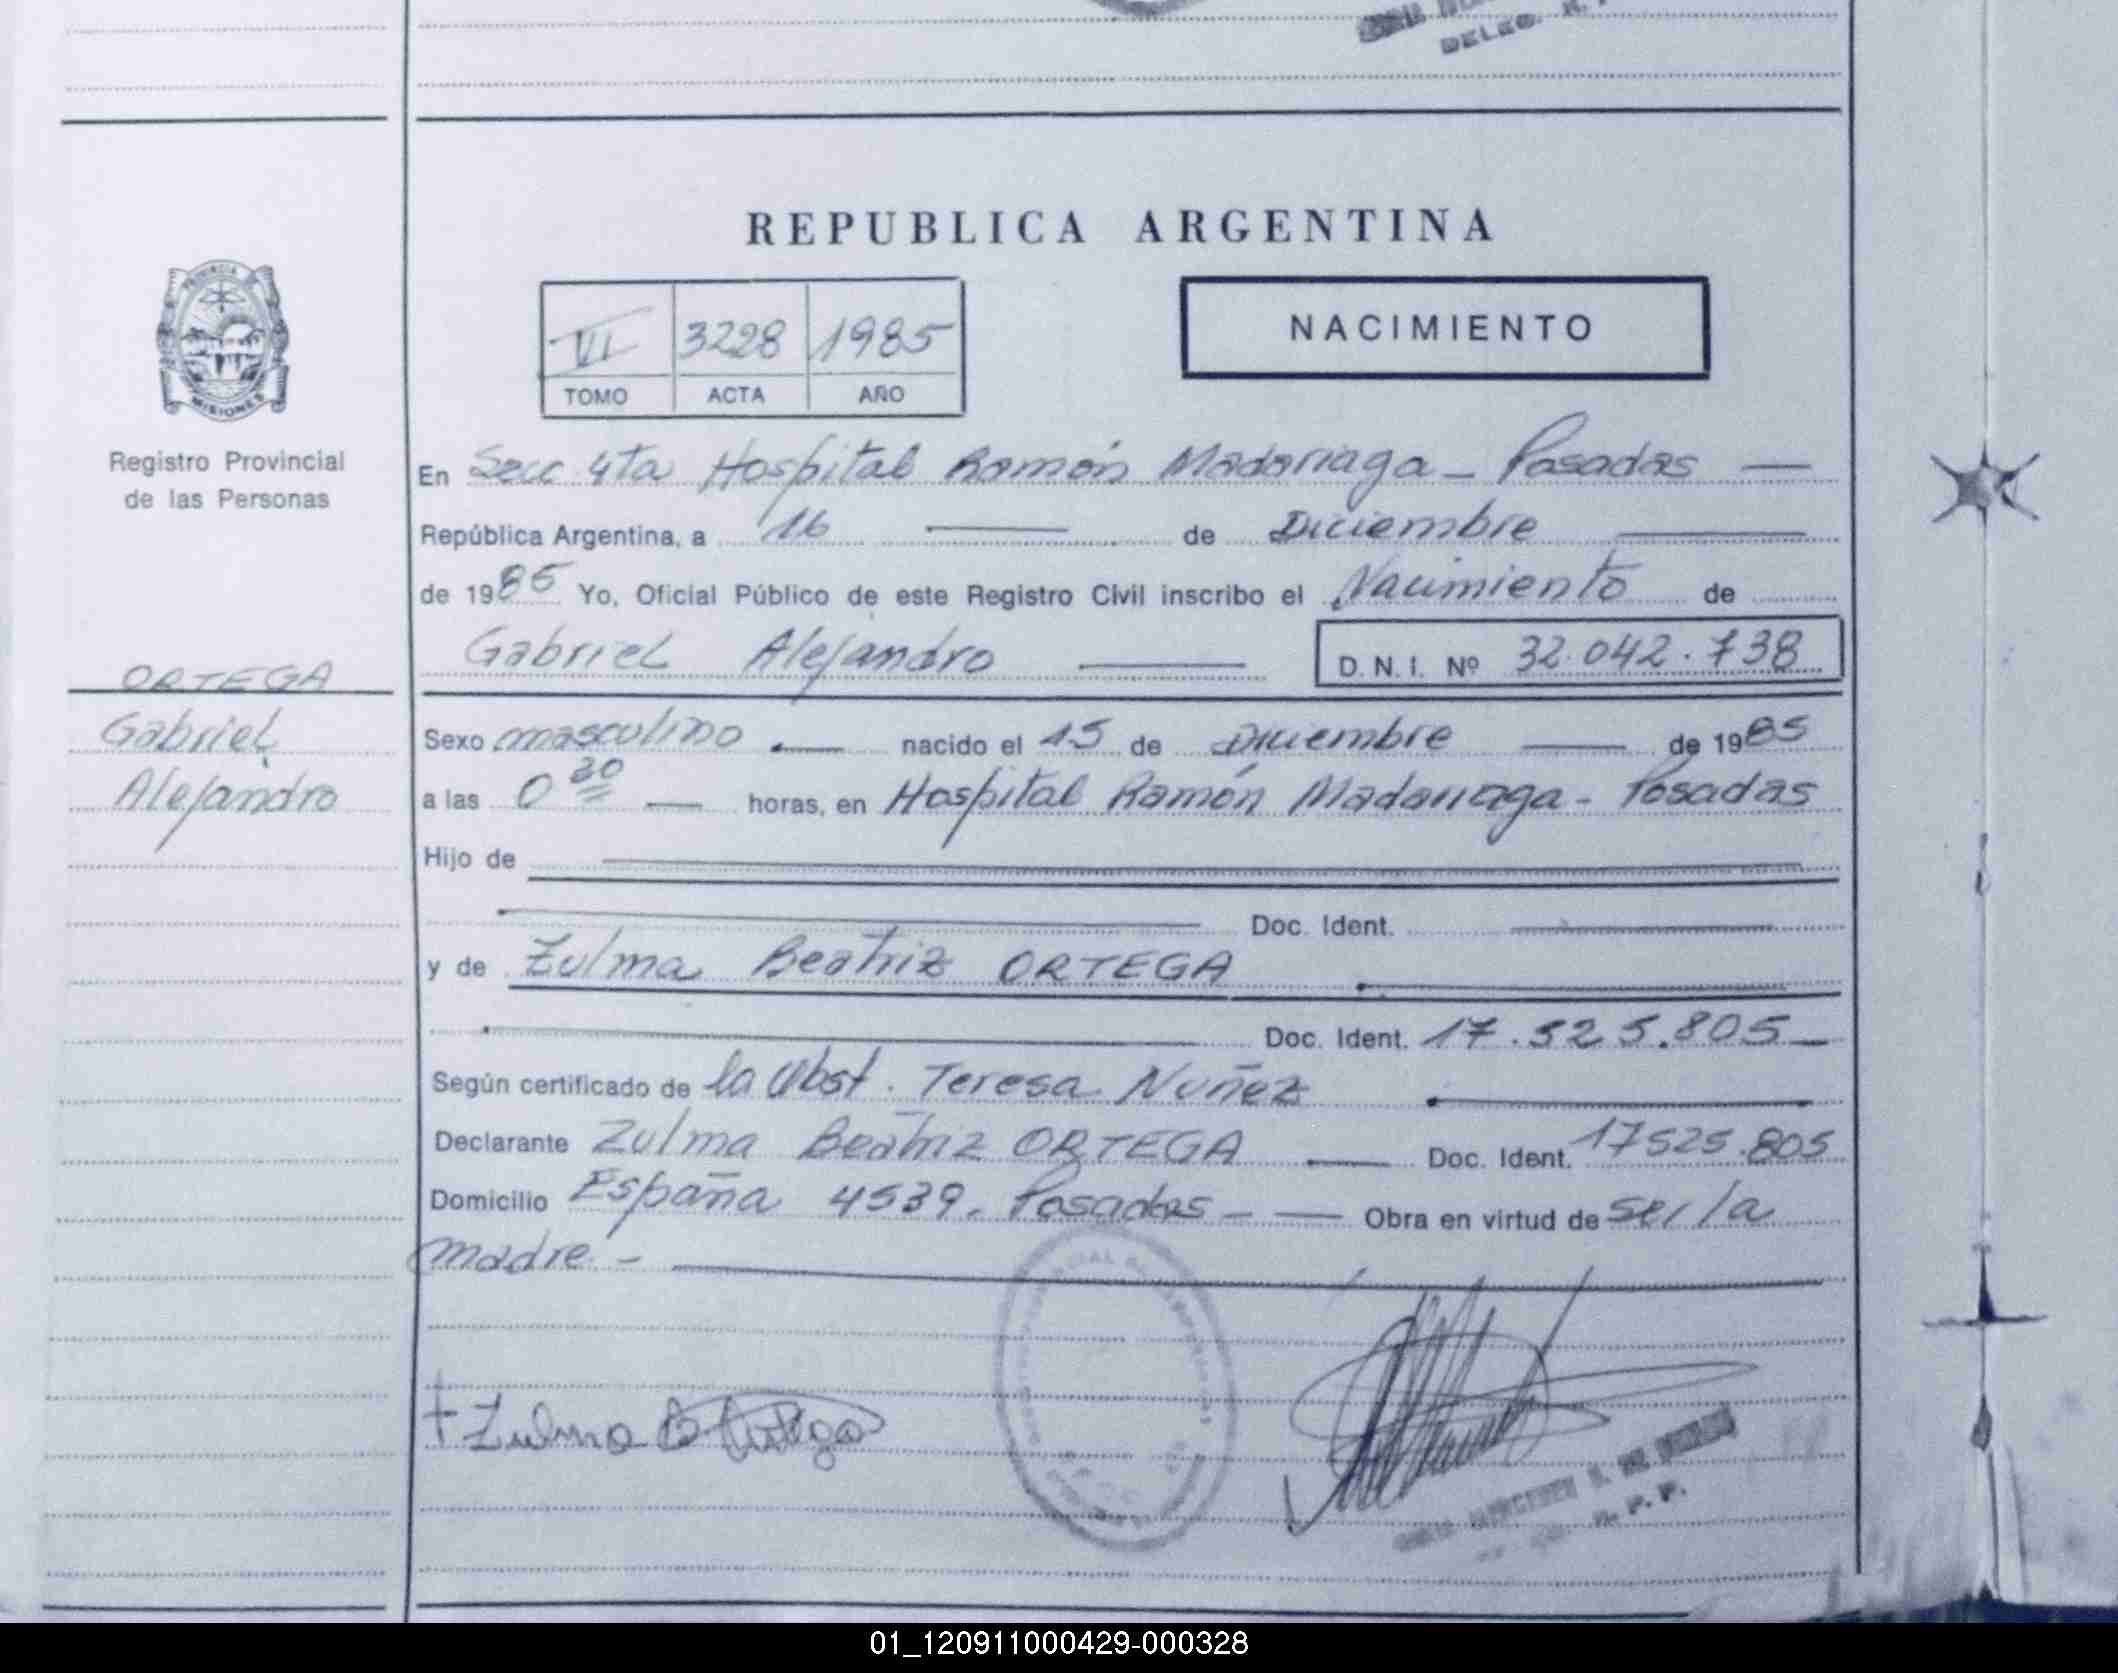 DELEG. R.
REPUBLICA ARGENTINA
PROVINCIA DE
MISIONES
VI 3228 1985
TOMO ACTA AÑO
NACIMIENTO
Registro Provincial
de las Personas
En Secc 4ta Hospital Ramón Madariaga - Posadas —
República Argentina, a 16 — de Diciembre —
de 1985 Yo, Oficial Público de este Registro Civil inscribo el Nacimiento de
Gabriel Alejandro — D. N. I. Nº 32.042.738
ORTEGA
Gabriel
Alejandro
Sexo masculino — nacido el 15 de Diciembre — de 1985
a las 0 30 — horas, en Hospital Ramón Madariaga - Posadas
Hijo de —
— Doc. Ident. —
y de Zulma Beatriz ORTEGA —
— Doc. Ident. 17.525.805 —
Según certificado de la Obst. Teresa Nuñez —
Declarante Zulma Beatriz ORTEGA — Doc. Ident. 17525.805
Domicilio España 4539. Posadas - — Obra en virtud de ser la
madre. - —
Zulma B Ortega
R. P. P.
01_120911000429-000328